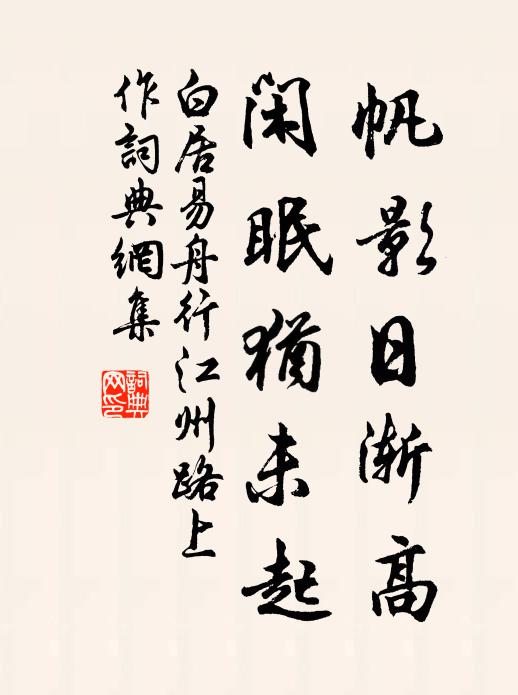 帆影日漸高
閑眠猶未起
白居易舟行江州路上
作詞典網集
詞典网印